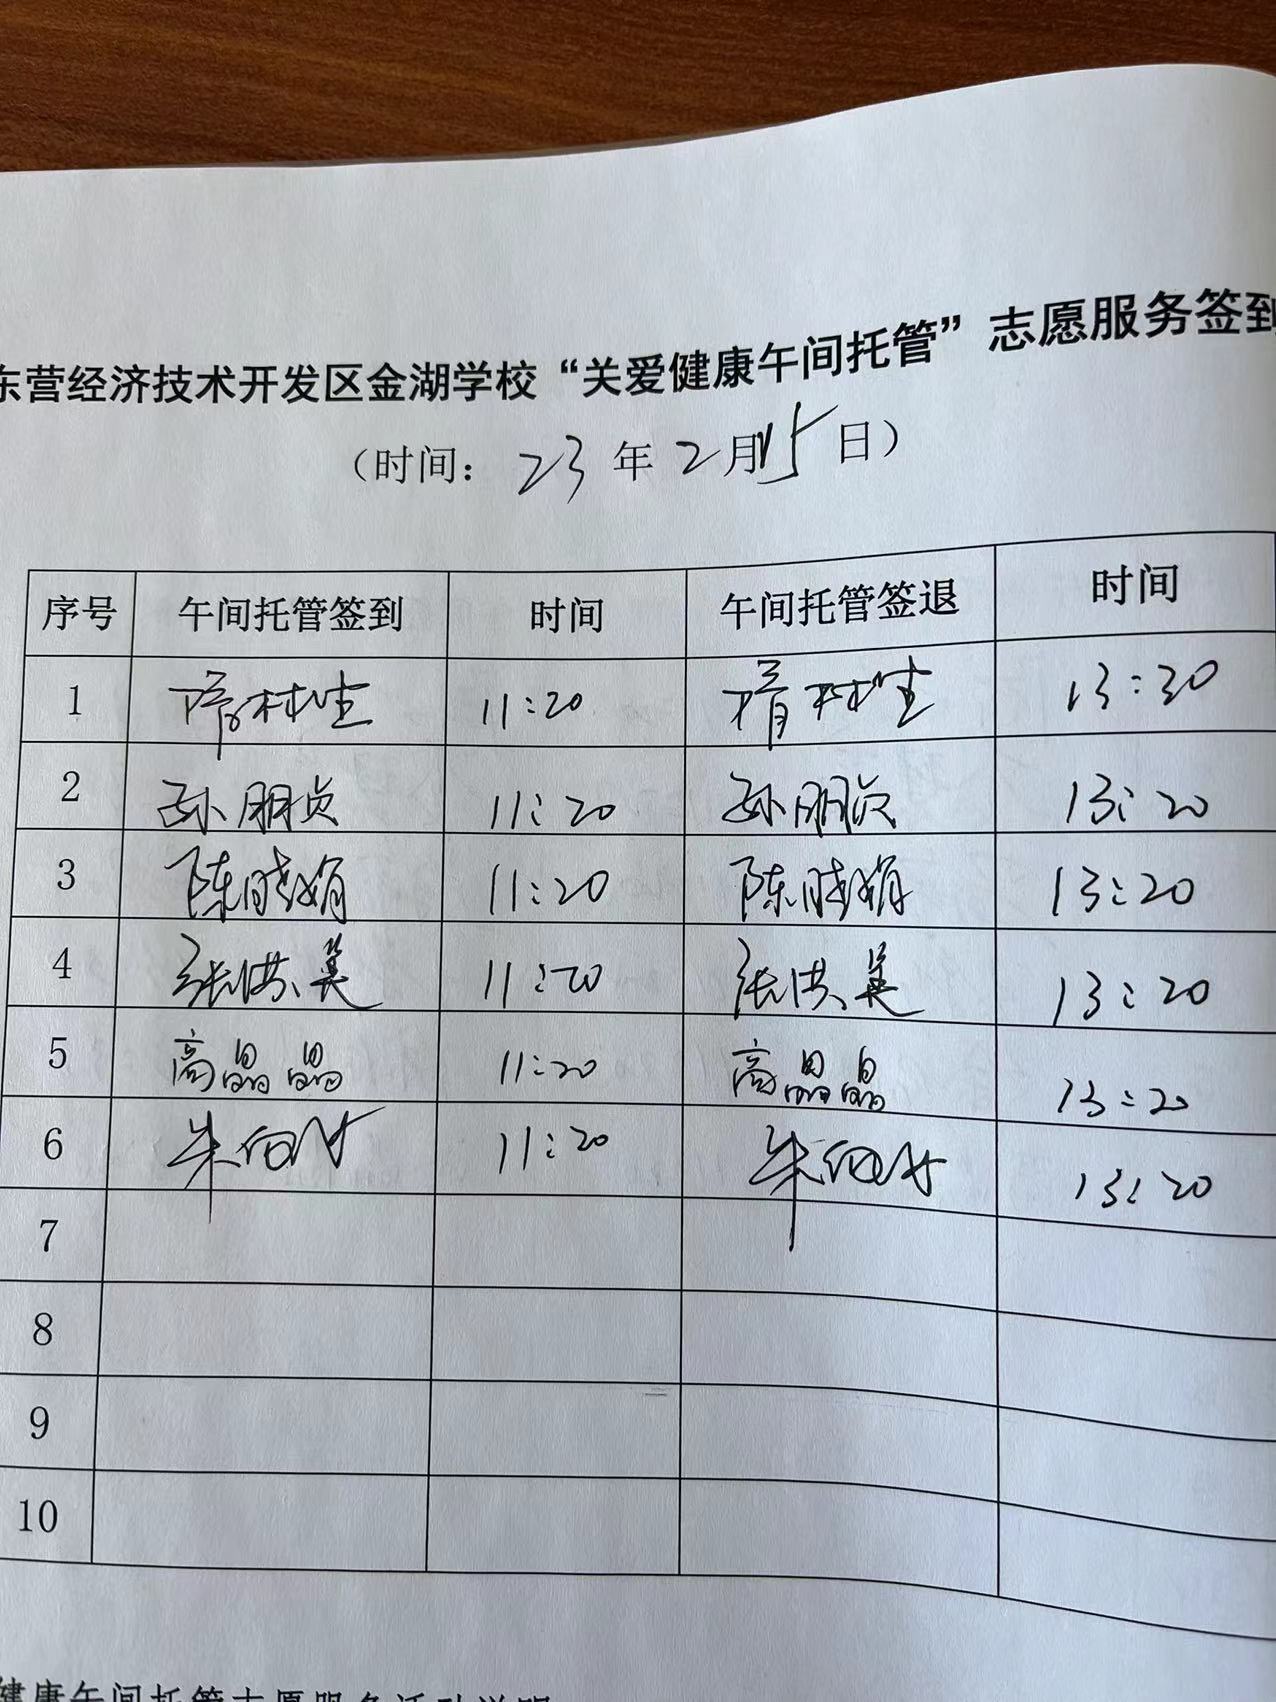 东营经济技术开发区金湖学校“关爱健康午间托管”志愿服务签到
（时间： 23 年 2 月 15 日）
序号 午间托管签到 时间 午间托管签退 时间
1 隋林生 11:20 隋林生 13:20
2 孙朋贞 11:20 孙朋贞 13:20
3 陈晓娟 11:20 陈晓娟 13:20
4 张洪美 11:20 张洪美 13:20
5 高晶晶 11:20 高晶晶 13:20
6 朱 11:20 朱 13:20
7
8
9
10
健康午间托管志愿服务活动说明